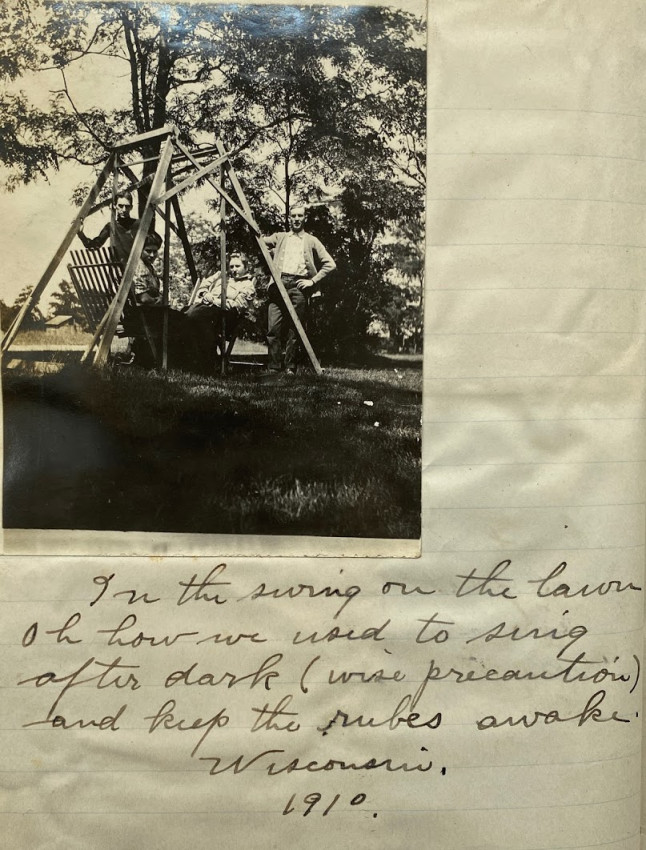 In the swing on the lawn
Oh how we used to sing
after dark (wise precaution)
and keep the rubes awake.
Wisconsin.
1910.